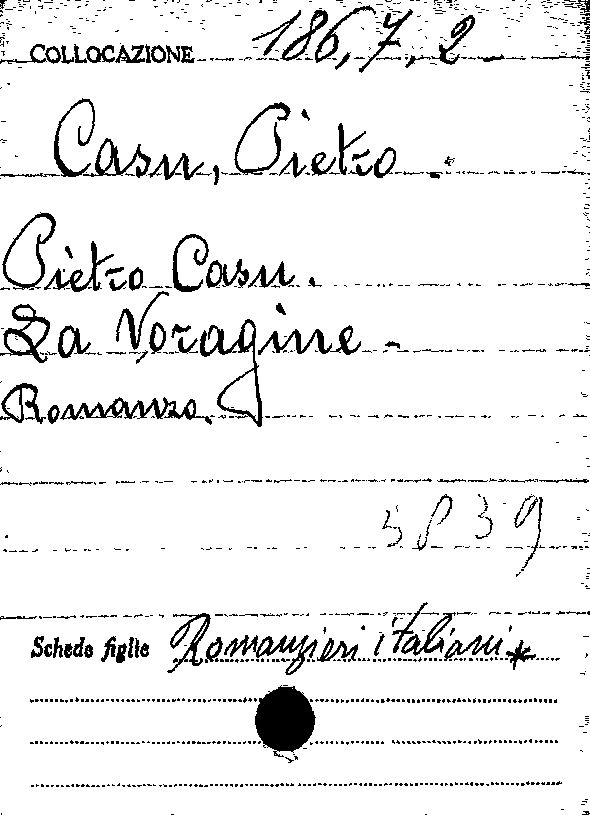 COLLOCAZIONE 186,7,2
Casu, Pietro.
Pietro Casu.
La Voragine -
Romanzo.
5839
Schede figlie Romanzieri italiani *